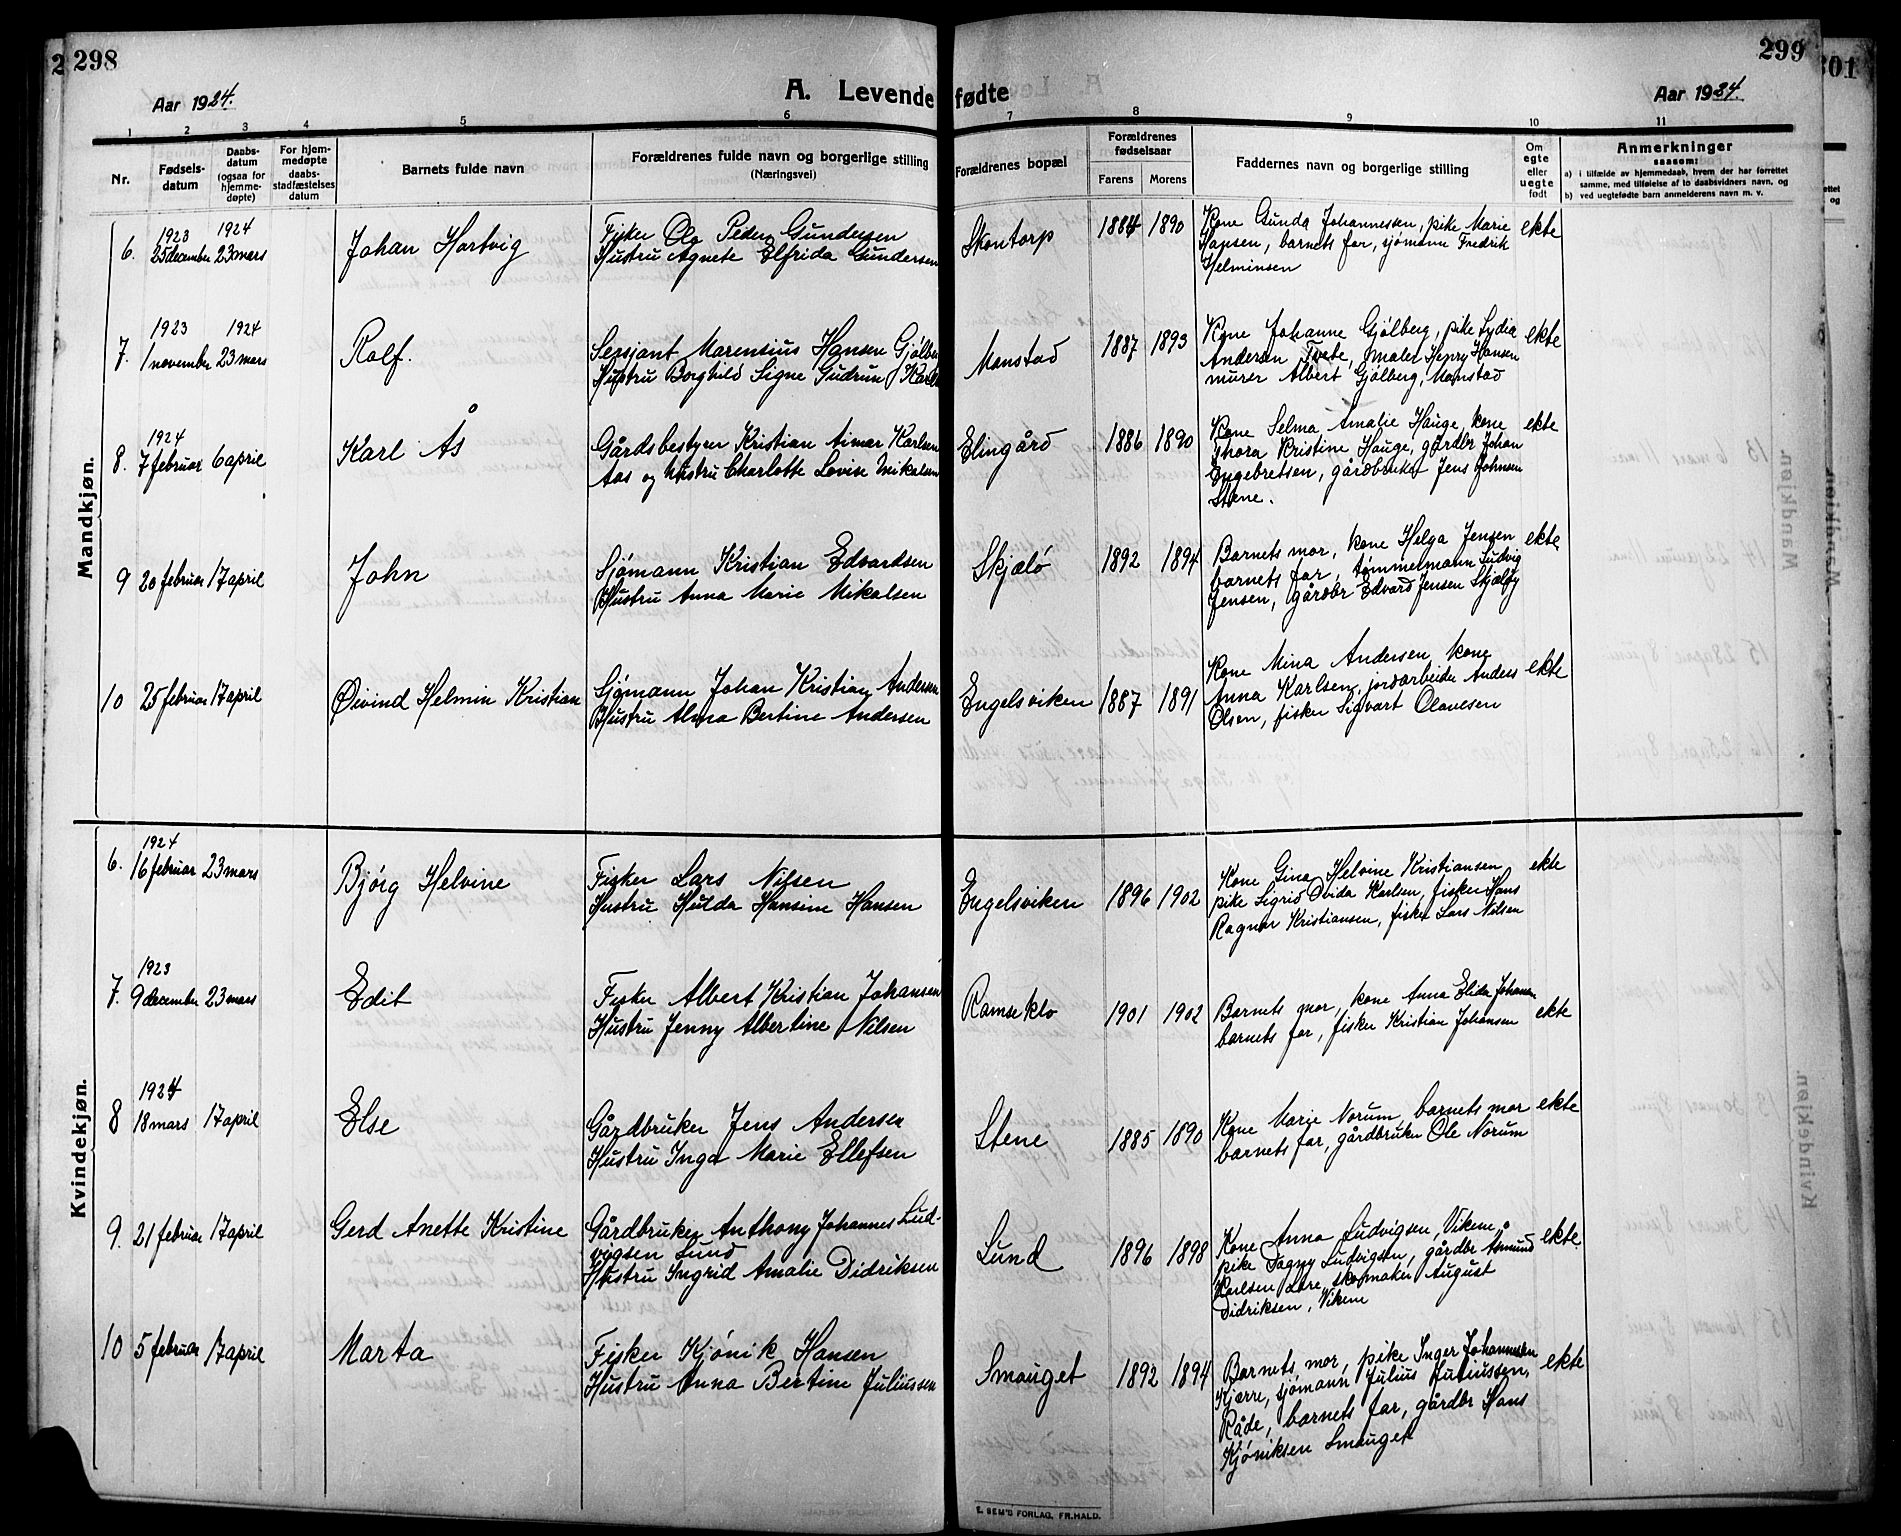 298
299
301
Aar 1924.
A. Levende fødte
Aar 1924.
1 2 3 4 5 6 7 8 9 10 11
Nr.
Fødselsdatum
Daabsdatum (ogsaa for hjemmedøpte)
For hjemmedøpte daabsstadfæstelses datum
Barnets fulde navn
Forældrenes fulde navn og borgerlige stilling
(Næringsvei)
Forældrenes bopæl
Forældrenes fødselsaar
Farens Morens
Faddernes navn og borgerlige stilling
Om egte eller uegte født
Anmerkninger
saasom:
a) i tilfælde av hjemmedaab, hvem der har forrettet samme, med tilføielse af to daabsvidners navn, og
b) ved uegtefødte barn anmelderens navn m. v.
Mandkjøn.
1923 1924
6. 25 december 23 mars Johan Hartvig
Fisker Ole Peder Gundersen
Hustru Agnete Elfrida Gundersen
Skontorp 1884 1890
Kone Gunda Johannessen, pike Marie
Hansen, barnets far, sjømann Fredrik
Helminsen
ekte
1923 1924
7. 1 november 23 mars Rolf.
Sersjant Marensius Hansen Gjølberg
Hustru Borghild Signe Gudrun
Manstad 1887 1893
Kone Johanne Gjølberg, pike Lydia
Andersen Tvete, maler Henry Hansen
murer Albert Gjølberg, Manstad
ekte
1924
8. 7 februar 6 april Karl Ås
Gårdsbestyrer Kristian Aimar Karlsen
Aas og hustru Charlotte Lovise Mikalsen
Elingård 1886 1890
Kone Selma Amalie Hauge, kone
Thora Kristine Hauge, gårdbr Johan
Engebretsen, gårdbruker Jens Johnsen
Stene.
ekte
9 20 februar 17 april John
Sjømann Kristian Edvardsen
Hustru Anna Marie Mikalsen
Skjælø 1892 1894
Barnets mor, kone Helga Jensen
barnets far, tømmermann Ludvig
Jensen, gårdbr Edvard Jensen Skjæløy
ekte
10 25 februar 17 april Øivind Helmin Kristian
Sjømann Johan Kristian Andersen
Hustru Alma Bertine Andersen
Engelsviken 1887 1891
Kone Mina Andersen, kone
Anna Karlsen, jordarbeider Anders
Olsen, fisker Sigvart Olavesen
ekte
Kvindekjøn.
1924
6. 16 februar 23 mars Bjørg Helvine
Fisker Lars Nilsen
Hustru Hulda Hansine Hansen
Engelsviken 1896 1902
Kone Gina Helvine Kristiansen
pike Sigrid Ovida Karlsen, fisker Hans
Ragnar Kristiansen, fisker Lars Nilsen
ekte
1923
7. 9 december 23 mars Edit
Fisker Albert Kristian Johansen
Hustru Jenny Albertine Nilsen
Ramseklo 1901 1902
Barnets mor, kone Anna Elida Johansen
barnets far, fisker Kristian Johansen
ekte
1924
8 18 mars 17 april Else
Gårdbruker Jens Andersen
Hustru Inga Marie Ellefsen
Stene 1885 1890
Kone Marie Norum, barnets mor
barnets far, gårdbruker Ole Norum
ekte
9. 21 februar 17 april Gerd Anette Kristine
Gårdbruker Anthony Johannes Lud-
vigsen Lund
Hustru Ingrid Amalie Didriksen
Lund 1896 1898
Kone Anna Ludvigsen, Vikene,
pike Dagny Ludvigsen, gårdbr Åsmund
Karlsen Øbre, skomaker August
Didriksen, Vikene
ekte
10 5 februar 17 april Marta
Fisker Kjønik Hansen
Hustru Anna Bertine Juliussen
Smauget 1892 1894
Barnets mor, pike Inger Johannessen
Kjærre, sjømann Julius Juliussen,
Råde, barnets far, gårdbr Hans
Kjøniksen Smauget
ekte
E. SEM'S FORLAG, FR.HALD.